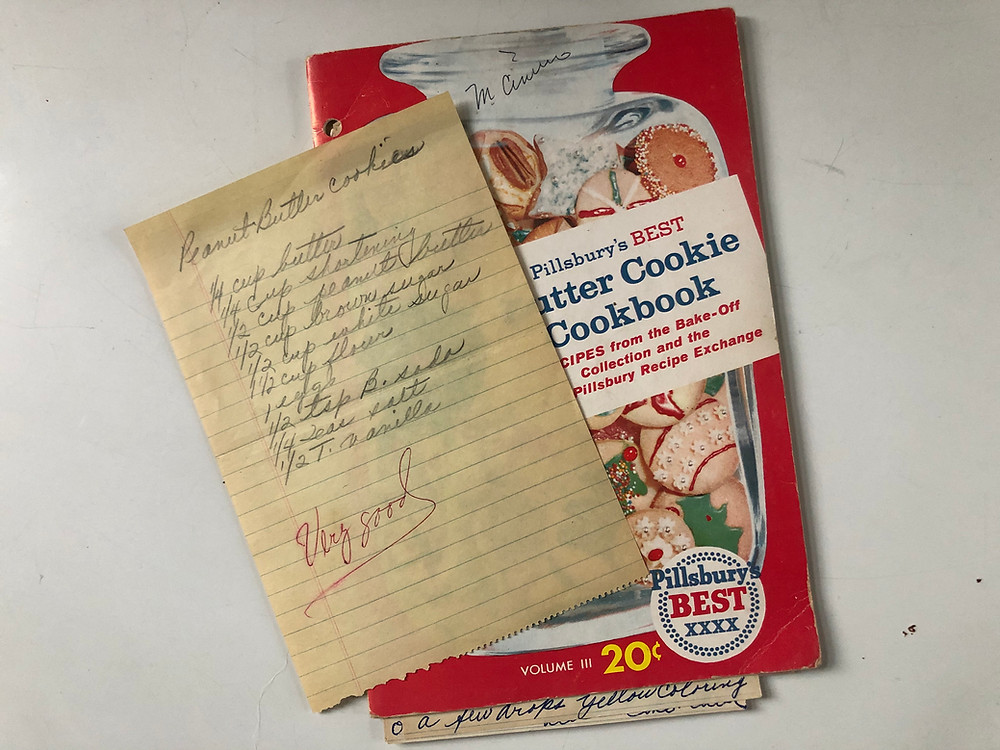 Peanut Butter cookies
1/4 cup butter
1/4 cup shortening
1/2 cup peanut butter
1/2 cup brown sugar
1/2 cup white sugar
1/2 cup flour
1 egg
1/2 tsp B. soda
1/4 teas salt
1/2 T. vanilla
Very good
M
Pillsbury's BEST
utter Cookie
Cookbook
CIPES from the Bake-Off
Collection and the
Pillsbury Recipe Exchange
Pillsbury's
BEST
XXXX
VOLUME III 20¢
a few drops yellow Coloring